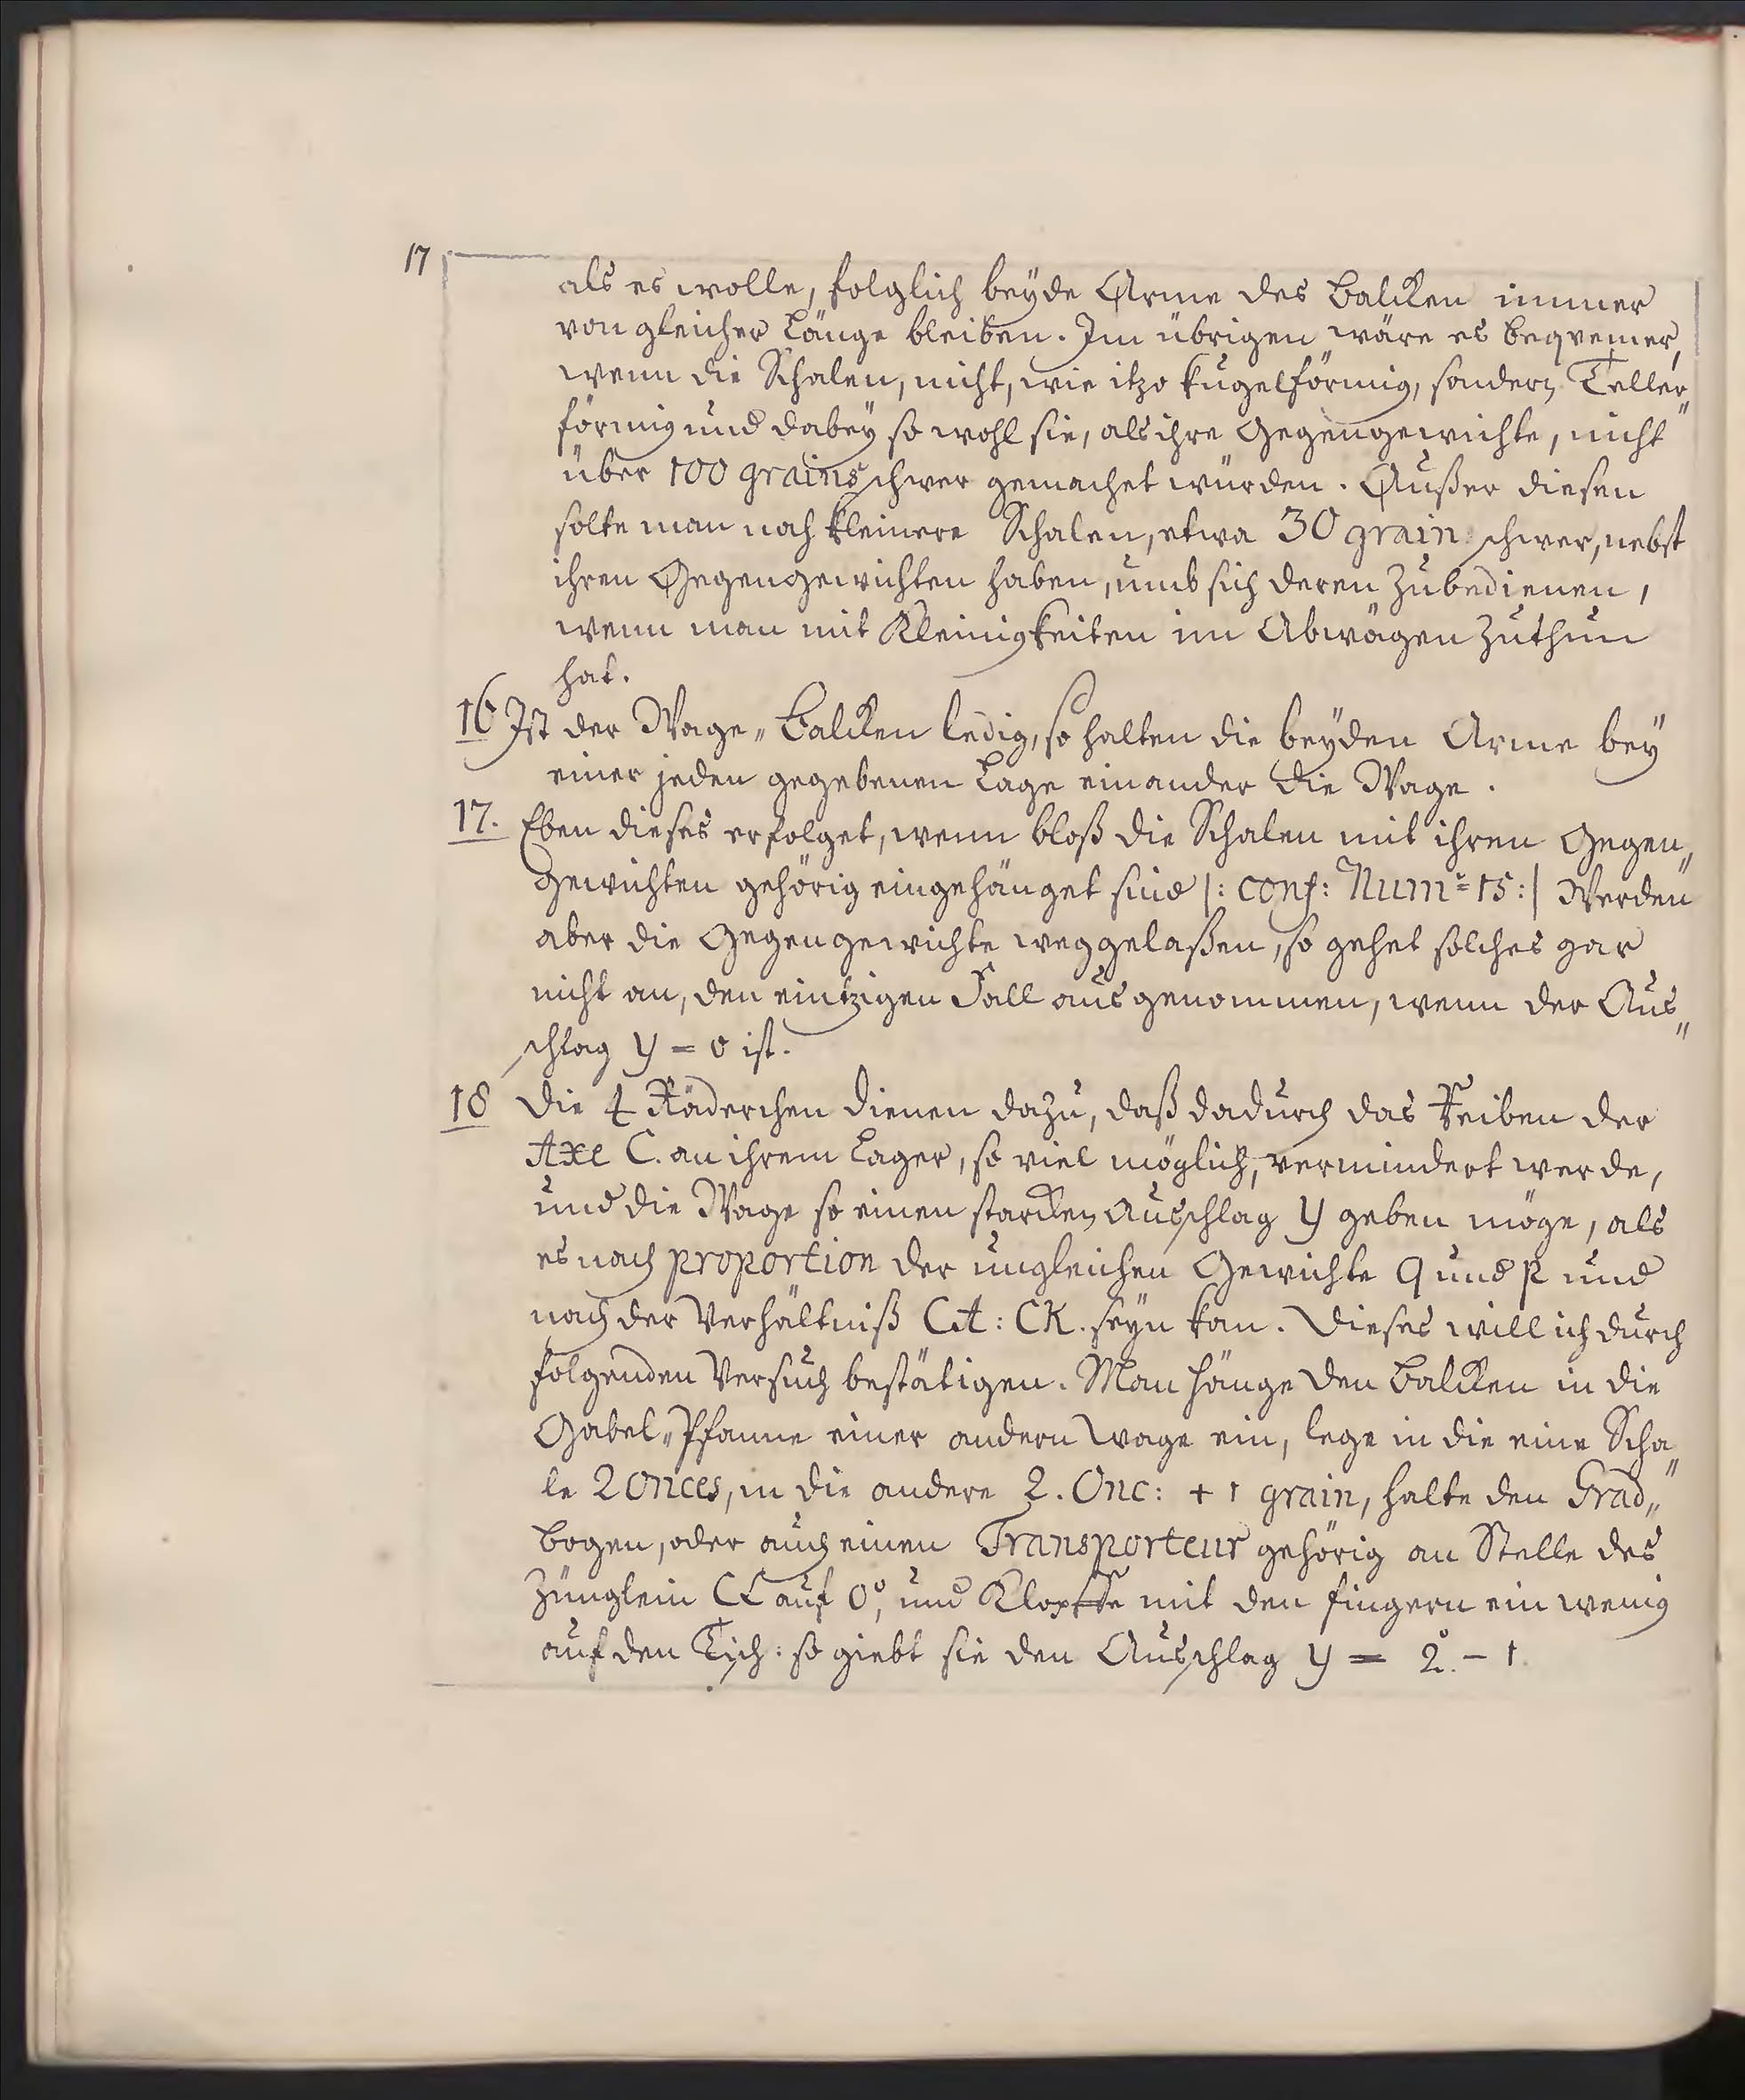 17
als es wolle, folglich beyde Arme des Balcken immer
von gleicher Länge bleiben. Im übrigen wäre es beqvemer,
wenn die Schalen, nicht, wie itzo kugelförmig, sondern Teller„
förmig und dabey so wohl sie, als ihre Gegengewichte, nicht
über 100 grains schwer gemachet würden. Außer diesen
solte man noch kleinere Schalen, etwa 30 grain schwer, nebst
ihren Gegengewichten haben, umb sich deren zubedienen,
wenn man mit Kleinigkeiten im Abwägen zuthun
hat.
16 Ist der Wage„Balcken ledig, so halten die beyden Arme bey
einer jeden gegebenen Lage einander die Wage.
17. Eben dieses erfolget, wenn bloß die Schalen mit ihren Gegen„
gewichten gehörig eingehänget sind |: conf: Num= 15 :| Werden
aber die Gegengewichte weggelaßen, so gehet solches gar
nicht an, den eintzigen Fall ausgenommen, wenn der Aus„
schlag y = 0 ist.
18 Die 4 Räderchen dienen dazu, daß dadurch das Reiben der
Axe C. an ihrem Lager, so viel möglich, vermindert werde,
und die Wage so einen starcken Ausschlag y geben möge, als
es nach proportion der ungleichen Gewichte q und p und
nach der Verhältniß CA : CK. seyn kan. Dieses will ich durch
folgenden Versuch bestätigen. Man hänge den Balcken in die
Gabel„Pfanne einer andern Wage ein, lege in die eine Scha„
le 2 onces, in die andere 2. Onc: + 1 grain, halte den Grad„
bogen, oder auch einen Transporteur gehörig an Stelle des
Zünglein auf 0°, und Klopffe mit den fingern ein wenig
auf den Tisch: so giebt sie den Ausschlag y = 2°. – 1.